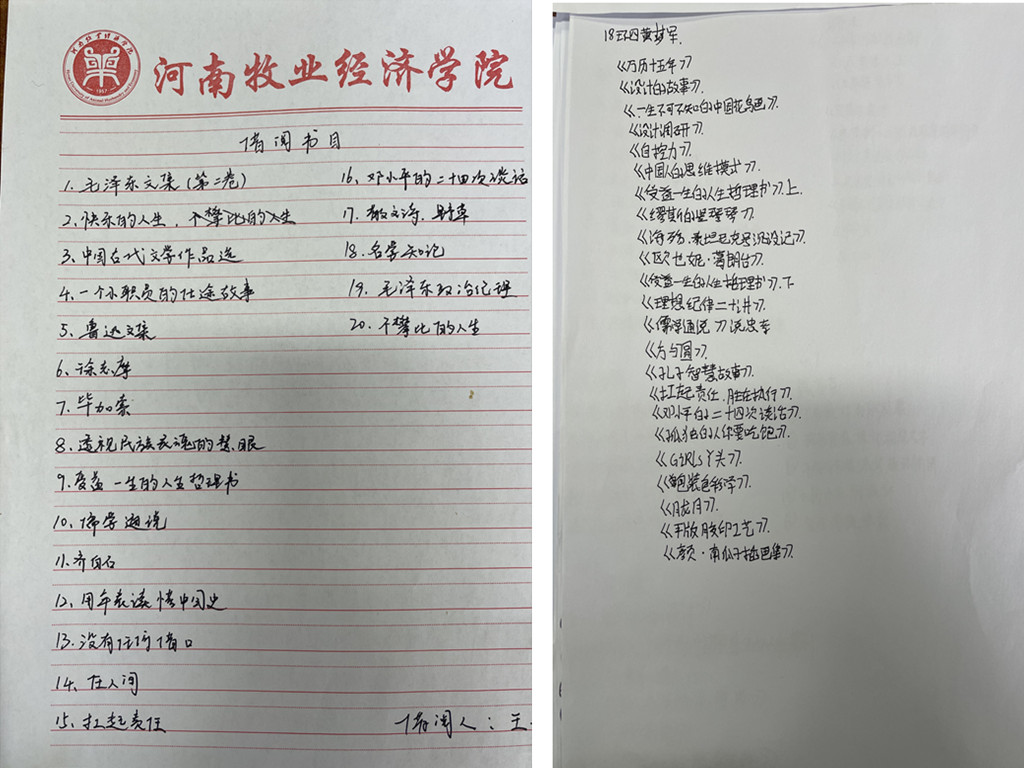 河南牧业经济学院
借阅书目
1. 毛泽东文集(第二卷)
2. 快乐的人生,不攀比的人生
3. 中国古代文学作品选
4. 一个小职员的仕途故事
5. 鲁迅文集
6. 徐志摩
7. 毕加索
8. 透视民族衰魂的慧眼
9. 受益一生的人生哲理书
10. 儒学通说
11. 齐白石
12. 用年表读懂中国史
13. 没有任何借口
14. 在人间
15. 扛起责任
16. 邓小平的二十四次谈话
17. 散文诗,野草
18. 名学知记
19. 毛泽东政治纪理
20. 不攀比的人生
借阅人:王
18环四黄梦军.
《万历十五年》
《设计的故事》.
《一生不可不知的中国花鸟画》.
《设计调研》.
《自控力》.
《中国人的思维模式》.
《受益一生的人生哲理书》.上.
《海明斯坦克号沉没记》.
《欧也妮·葛朗台》.
《受益一生的人生哲理书》.下
《理想纪律二十讲》.
《儒学通说》沈忠李
《方与圆》.
《孔子智慧故事》.
《扛起责任,胜在执行》.
《邓小平的二十四次谈话》.
《孤独的人你要吃饱》.
《GIRLS丫头》.
《包装色彩学》.
《胧月》.
《平版胶印工艺》.